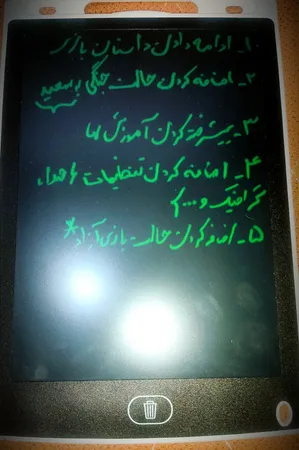 ۱_ ادامه دادن داستان بازی
۲_ اضافه کردن حالت جنگی به سعید
۳_ پیشرفته کردن آموزش ها
۴_ اضافه کردن تنظیمات (صدا،
گرافیک و...)
۵_ اضافه کردن حالت بازی آزاد*